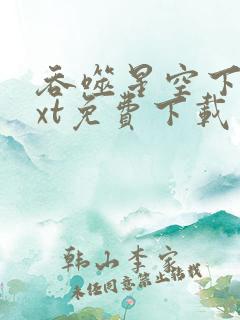 吞噬星空下
xt免費下載
韩山李家
未经同意禁止转载